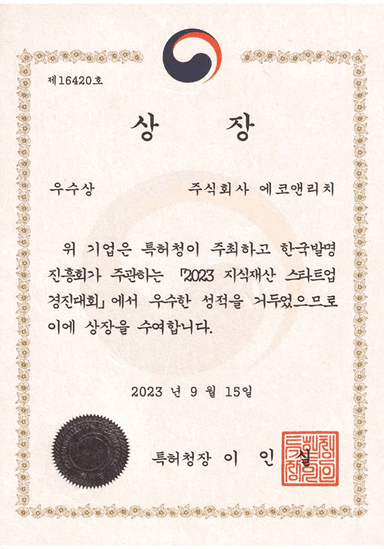 제16420호
상 장
우수상 주식회사 에코앤리치
위 기업은 특허청이 주최하고 한국발명
진흥회가 주관하는 「2023 지식재산 스타트업
경진대회」에서 우수한 성적을 거두었으므로
이에 상장을 수여합니다.
2023 년 9 월 15일
특허청장 이 인 실